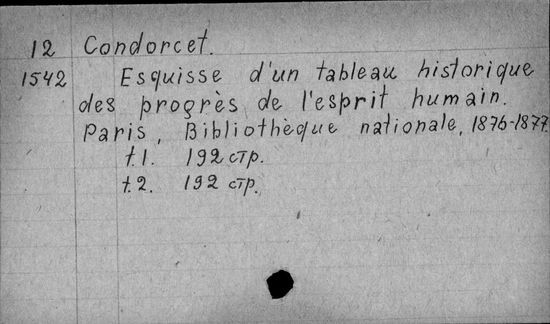 12 Condorcet.
1542 Esquisse d'un tableau historique
des progrès de l'esprit humain.
Paris, Bibliothèque nationale, 1876-1877.
t.1. 192 стр.
t.2. 192 стр.